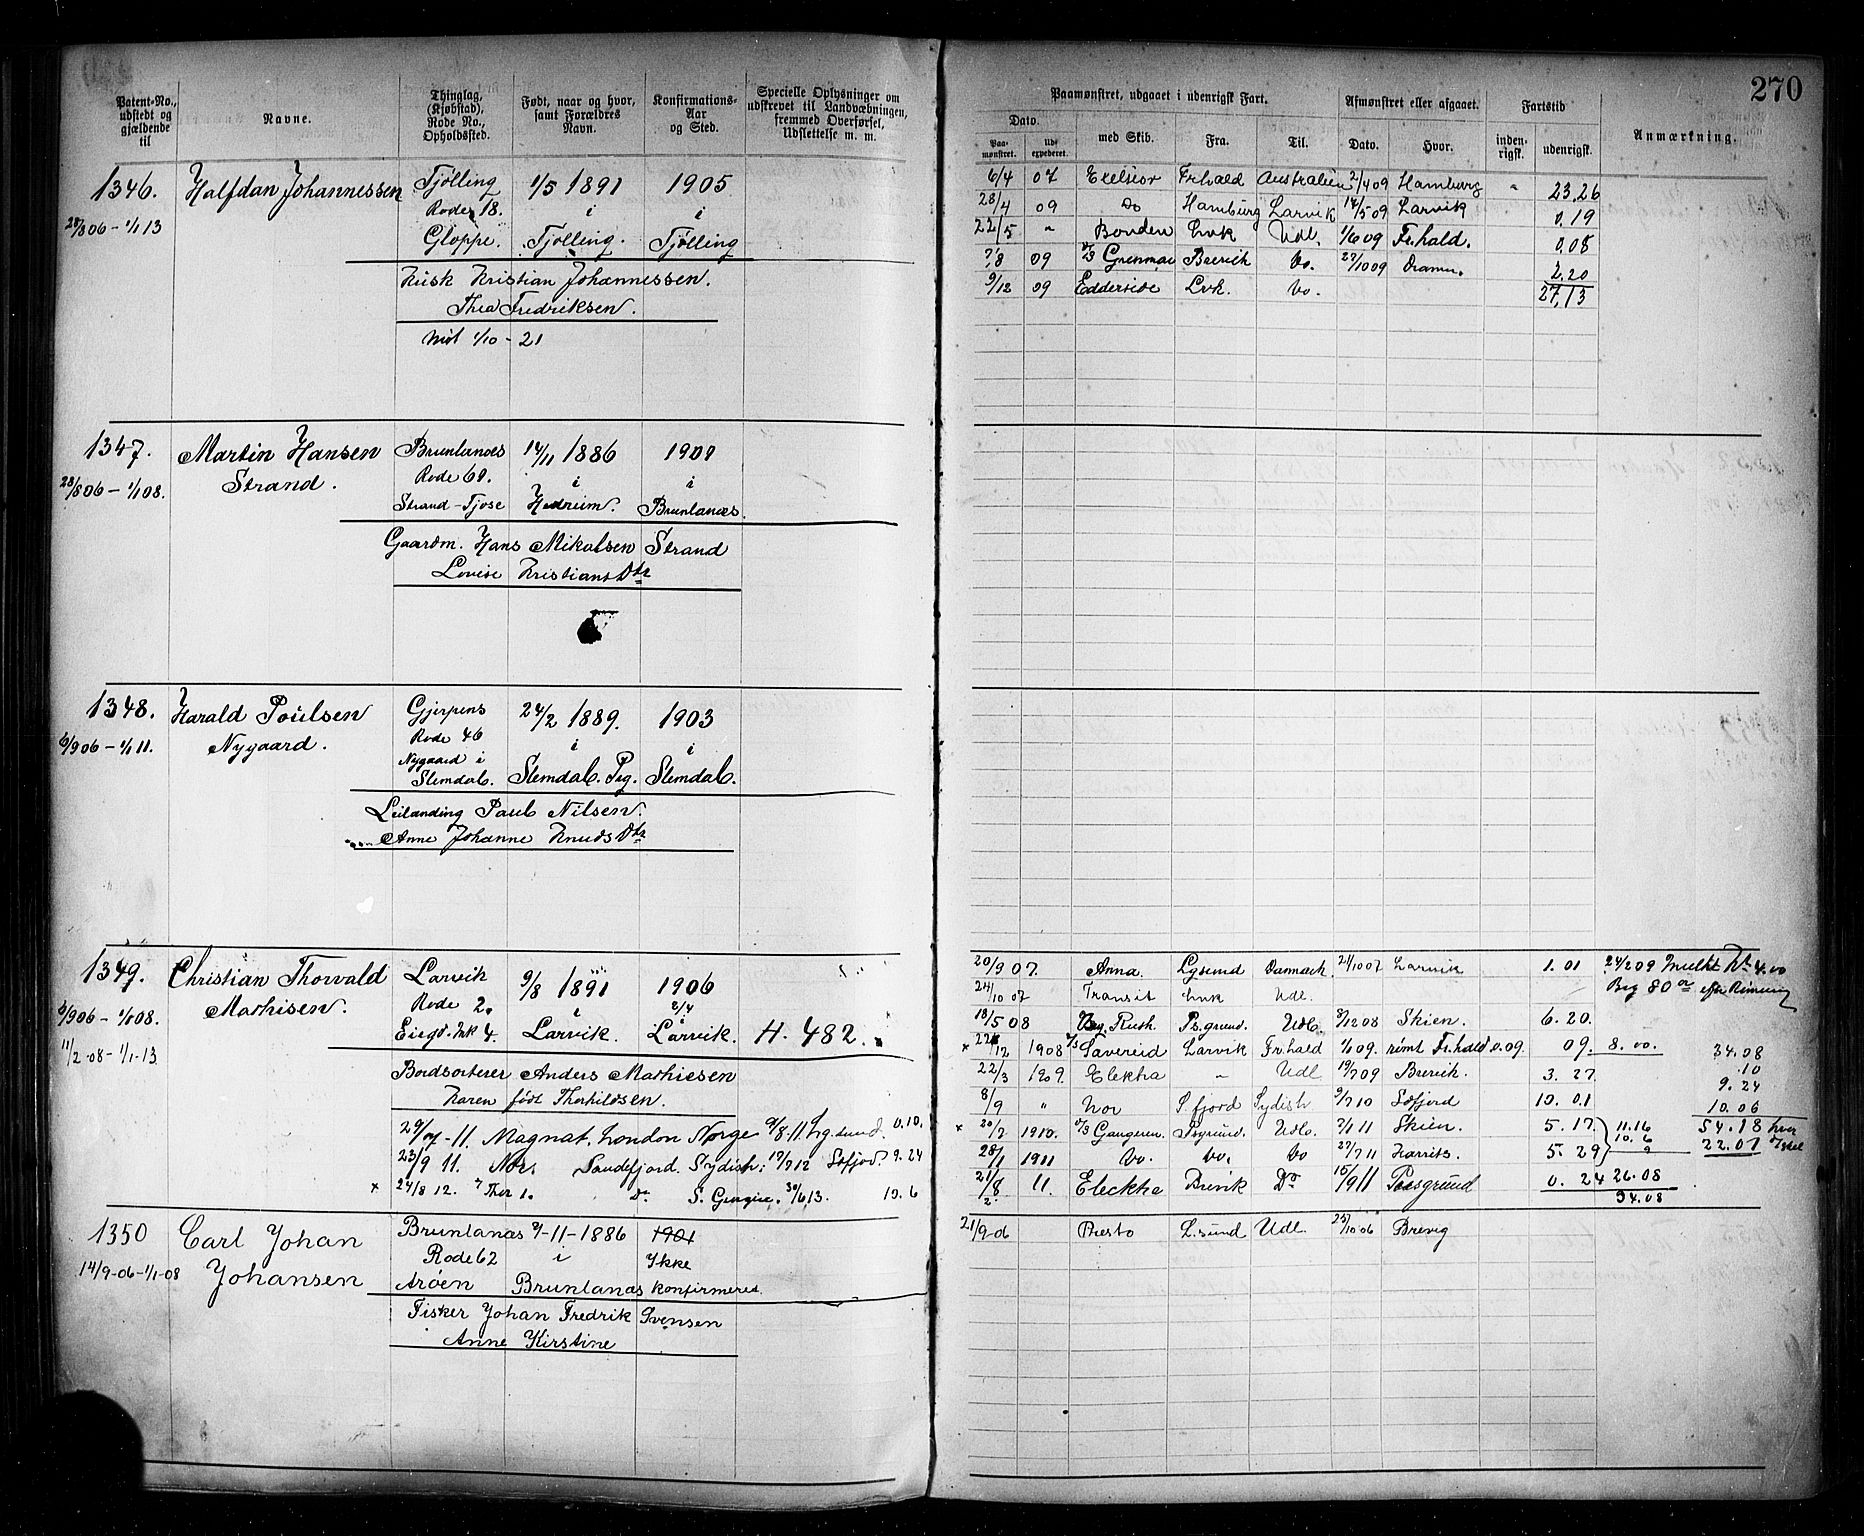 270
Patent-No., udstedt og gjældende til
Navne.
Thinglag, (Kjøbstad), Rode No., Opholdssted.
Født, naar og hvor, samt Forældres Navn.
Konfirmations-Aar og Sted.
Specielle Oplysninger om udskrevet til Landvæbningen, fremmed Overførsel, Udslettelse m. m.
Paamønstret, udgaaet i udenrigsk Fart.
Dato.
Paa-mønstret.
Ud-expederet.
med Skib.
Fra.
Til.
Afmønstret eller afgaaet.
Dato.
Hvor.
Fartstid
inden-rigsk.
udenrigsk.
Anmærkning.
1346. Halfdan Johannessen Tjølling 1/5 1891 1905
Rode 18. i i
28/8 06 - 1/1 13 Gloppe. Tjølling. Tjølling
Kusk Kristian Johannessen.
Thea Fredriksen.
1/10 - 21
6/4 07 Exelsior Fr.hald Australien 2/4 09 Hamburg 23,26
28/4 09 Do Hamburg Larvik 14/5 09 Larvik 0.19
22/5 " Bonden Lvk Udl. 1/6 09 Fr.hald. 0.08
7/8 09 Brevik Do. 27/10 09 Dramm. 2.20
9/12 09 Edderside Lvk. Do. 27,13
1347. Martin Hansen Brunlanæs 14/11 1886 1901
Strand. Rode 69. i i
28/8 06 - 1/1 08. Strand-Tjose Hedrum. Brunlanæs.
Gaardm. Hans Mikalsen Strand
Lovise Kristians Dtr
1348. Harald Poulsen Gjerpens 24/2 1889. 1903
Nygaard. Rode 46 i i
6/9 06 - 1/1 11. Nygaard i Slemdal. Slemdal. Prg. Slemdal.
Leilænding Paul Nilsen.
Anne Johanne Knuds Dtr
1349. Christian Thorvald Larvik 9/8 1891 1906
Mathisen. Rode 2. i 8/4
6/9 06 - 1/1 08. Larvik. Larvik. H. 482.
11/2 08 - 1/1-13
Bordsorterer Anders Mathiesen
Karen født Thorkildsen.
29/07-11. Magnat. London Norge 9/8-11. Lg.sund. 0.10.
23/9 11. Nor. Sandefjord. Sydish: 17/7 12 Sefjord. 9.24
x 24/8 12. Thor 1. Do S. Georgia. 30/6 13. 10.6
20/9 07. Anna. Lysund Danmark 21/10 07 Larvik 1.01 24/2 09 Mulkt Kr. 4.00
24/10 07 Transit Lvk Udl. 80 øre efter Rømning
18/5 08 Ps.grund. Udl. 8/12 08 Skien. 6.20.
x 22/12 1908 Larvik Fr.hald 1/1 09. rømt Fr.hald 0.09. 09. 8.00. 34.08
22/3 1909. Elektra " Udl 19/7 09 Brevik. 3.27. .10
8/9 " Nor S.fjord Sydish 9/7 10 Sefjord 10.01 9.24
10.06
x 20/7 1910. Psgrund. Udl. 2/1 11 Skien. 5.17. 11.16 54.18
28/1 1911 Do. Do. Do 27/7 11 5.29 10.6 22.07
21/8 11. Elecktra Brevik Do 15/9 11 Porsgrund 0.24 26.08
34.08
1350 Carl Johan Brunlanæs 9-11-1886 1901
Rode 62 i Ikke
14/9-06-1/1-08 Johansen Arøen Brunlanæs konfirmeret.
Fisker Johan Fredrik Svensen
Anne Kirstine
21/9-06 Presto L.sund Udl. 23/10 06 Brevig